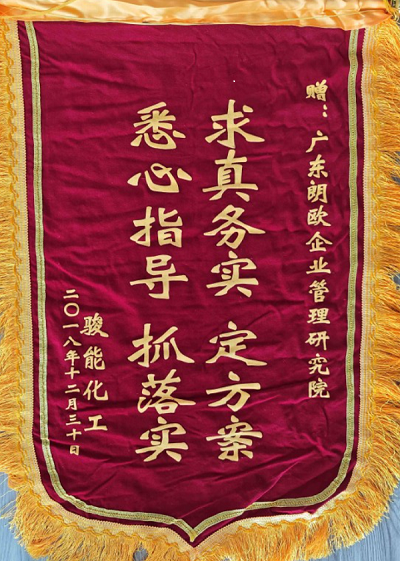 赠：广东朗欧企业管理研究院
求真务实 定方案
悉心指导 抓落实
骏能化工
二〇一八年十二月三十日